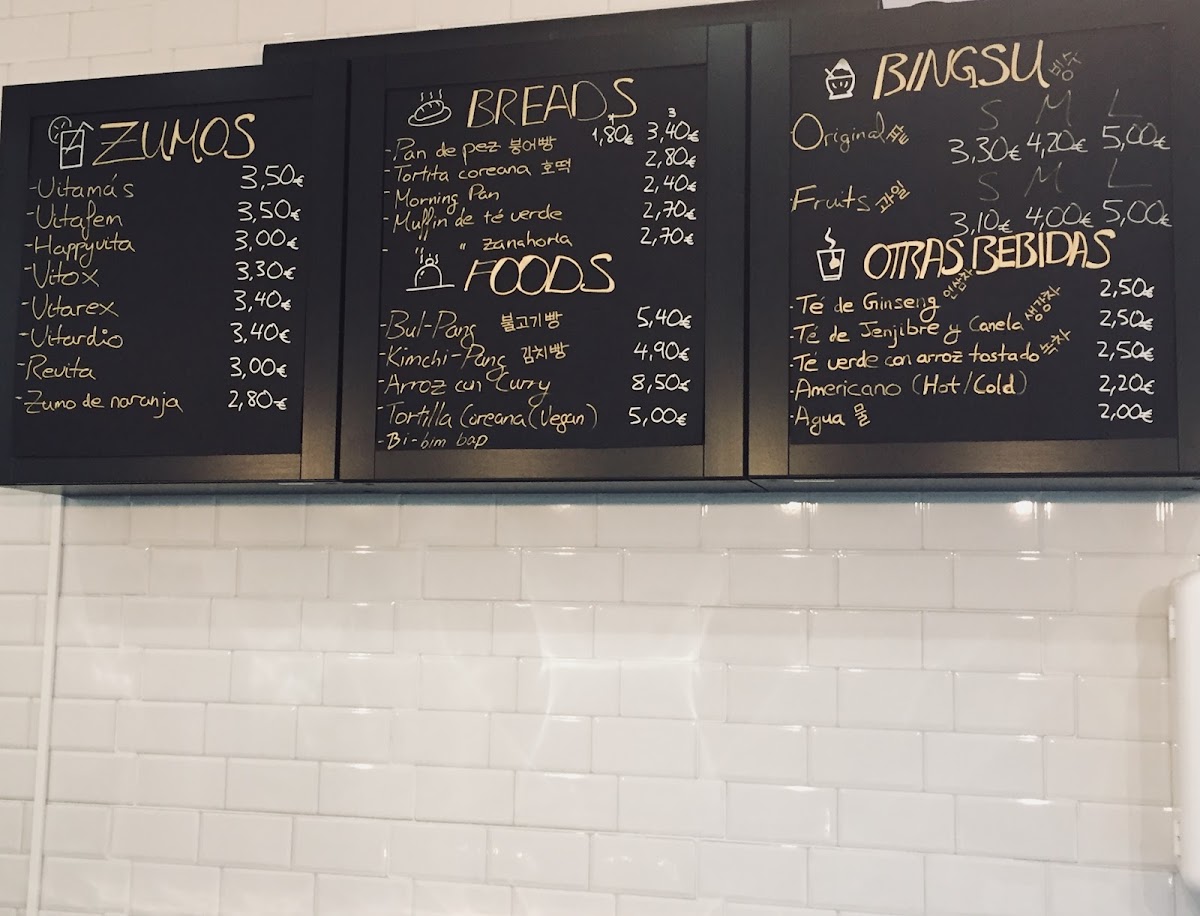 ZUMOS
-Vitamás 3,50€
-Vitafem 3,50€
-Happyvita 3,00€
-Vitox 3,30€
-Vitarex 3,40€
-Vitardio 3,40€
-Revita 3,00€
-Zumo de naranja 2,80€
BREADS
3
-Pan de pez 붕어빵 1,80€ 3,40€
-Tortita coreana 호떡 2,80€
-Morning Pan 2,40€
-Muffin de té verde 2,70€
- " " zanahoria 2,70€
FOODS
-Bul-Pang 불고기빵 5,40€
-Kimchi-Pang 김치빵 4,90€
-Arroz con Curry 8,50€
-Tortilla Coreana (Vegan) 5,00€
-Bi-bim bap
BINGSU 빙수
S M L
Original 팥 3,30€ 4,20€ 5,00€
S M L
Fruits 과일 3,10€ 4,00€ 5,00€
OTRAS BEBIDAS
-Té de Ginseng 인삼차 2,50€
-Té de Jenjibre y Canela 생강차 2,50€
-Té verde con arroz tostado 녹차 2,50€
-Americano (Hot/Cold) 2,20€
-Agua 물 2,00€